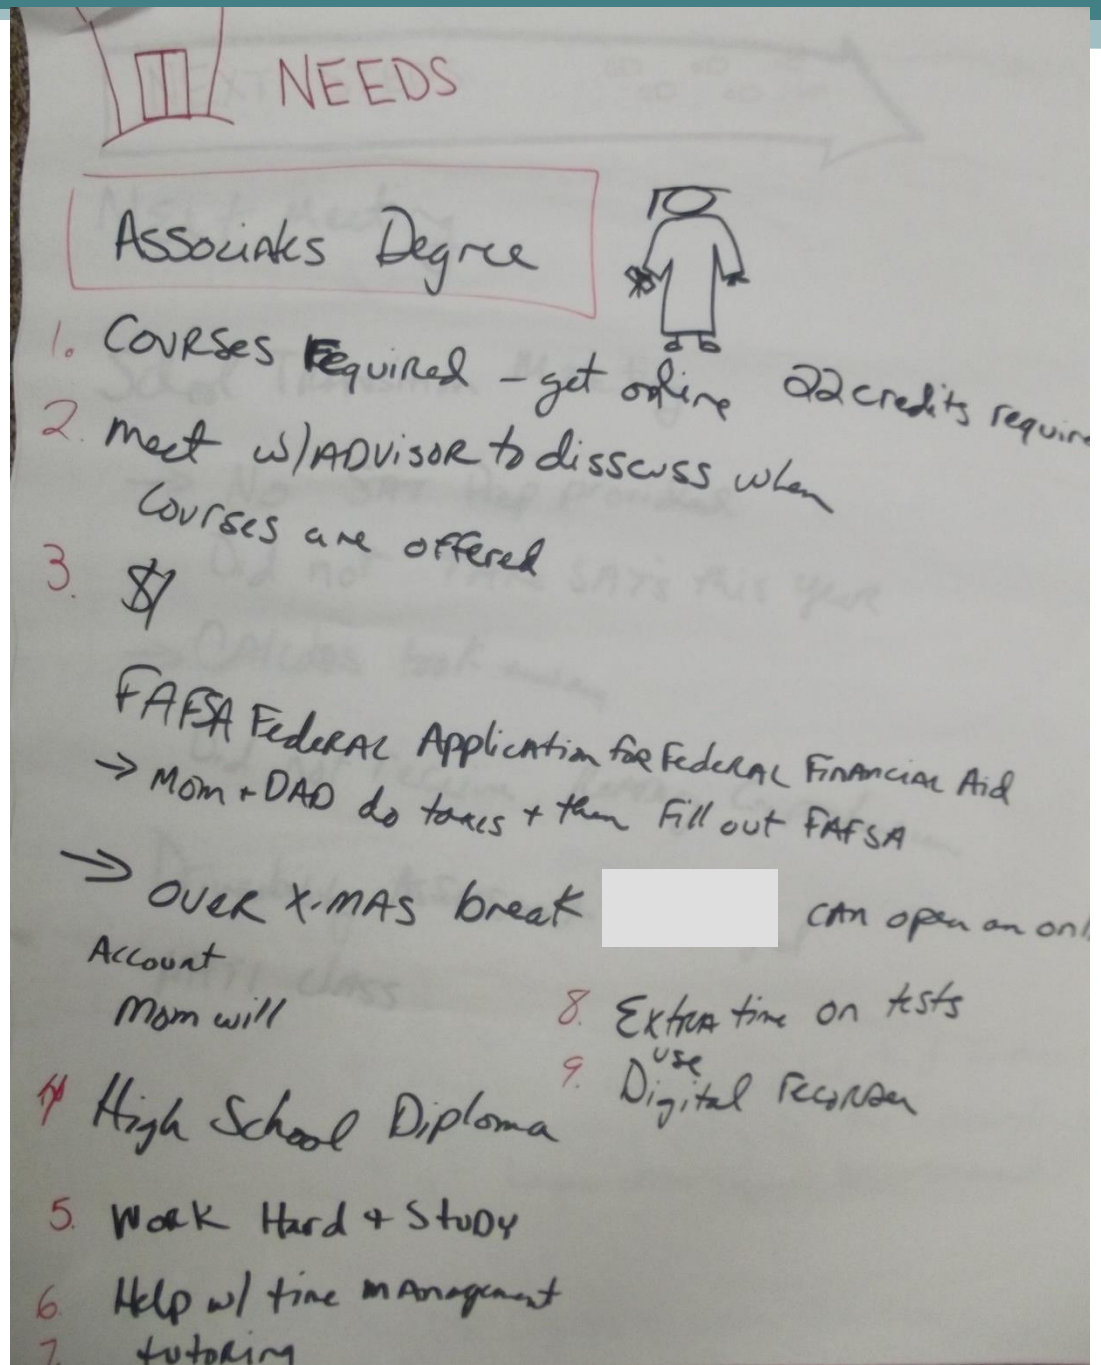 NEEDS
Associates Degree
1. Courses Required – get online 22 credits require
2. Meet w/ ADVISOR to disscuss when
Courses are offered
3. $
FAFSA Federal Application for Federal Financial Aid
→ Mom + DAD do taxes + then Fill out FAFSA
→ OVER X-MAS break CAN open an onl
Account
Mom will
4 High School Diploma
5. Work Hard + Study
6. Help w/ time management
7. tutoring
8. Extra time on tests
9. use Digital recorder